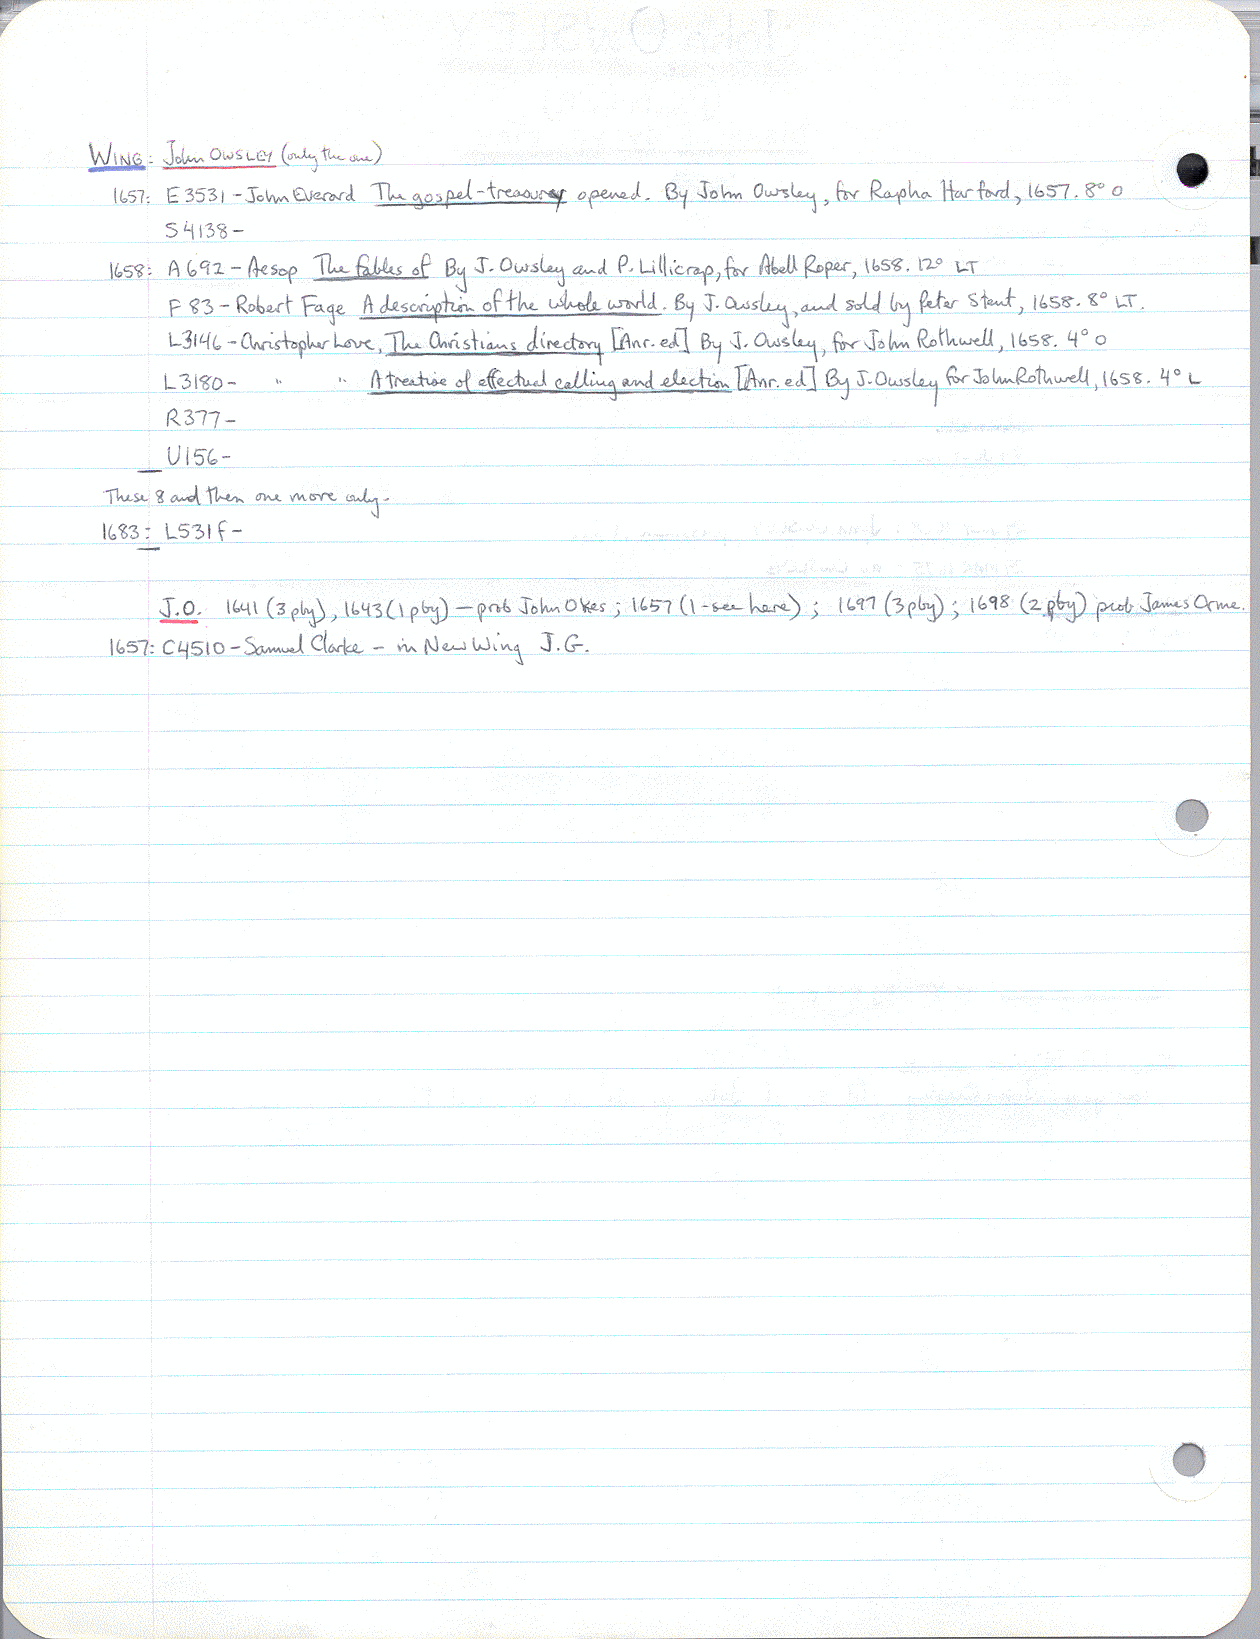 WING: John OWSLEY (only the one)
1657: E3531 - John Everard The gospel-treasury opened. By John Owsley, for Rapha Harford, 1657. 8° O
S4138 -
1658: A692 - Aesop The fables of By J. Owsley and P. Lillicrap, for Abell Roper, 1658. 12° LT
F83 - Robert Fage A description of the whole world. By J. Owsley, and sold by Peter Stent, 1658. 8° LT.
L3146 - Christopher Love, The Christians directory [Anr. ed] By J. Owsley, for John Rothwell, 1658. 4° O
L3180 - " " A treatise of effectual calling and election [Anr. ed] By J. Owsley for John Rothwell, 1658. 4° L
R377 -
U156 -
These 8 and then one more only -
1683: L531f -
J.O. 1641 (3 pby), 1643 (1 pby) - prob John Okes; 1657 (1 - see here); 1697 (3 pby); 1698 (2 pby) prob James Orme.
1657: C4510 - Samuel Clarke - in New Wing J.G.